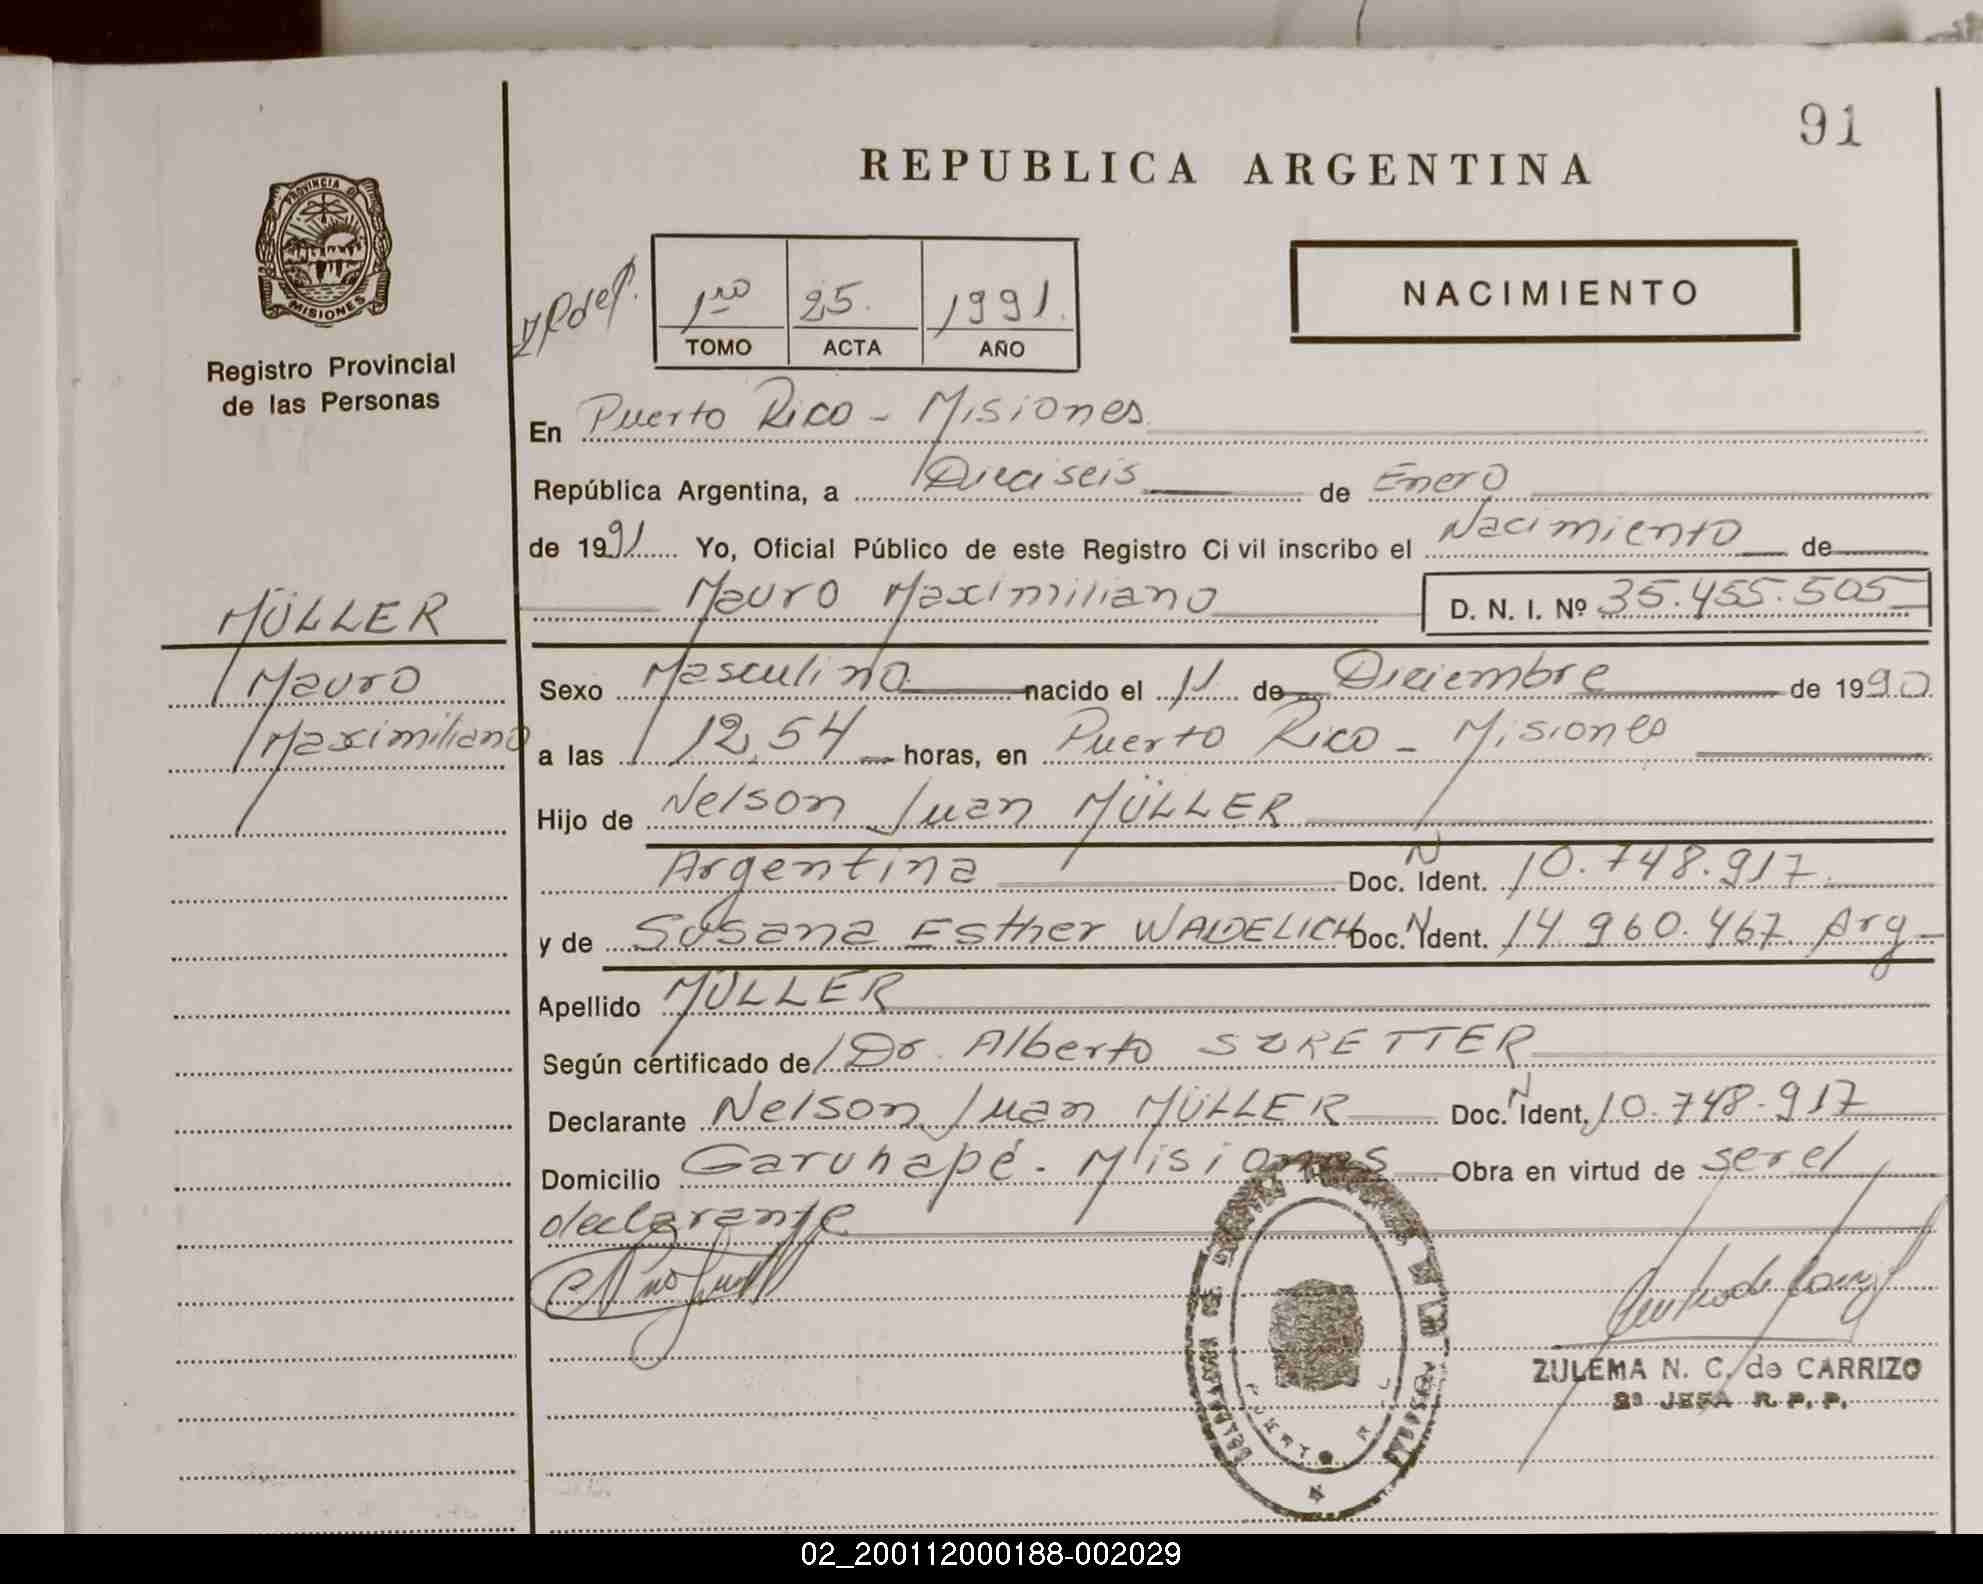 91
REPUBLICA ARGENTINA
PROVINCIA DE
MISIONES
Registro Provincial
de las Personas
1ro 25. 1991.
TOMO ACTA AÑO
NACIMIENTO
En Puerto Rico - Misiones
República Argentina, a Dieciseis de Enero
de 1991 Yo, Oficial Público de este Registro Civil inscribo el Nacimiento de
Mauro Maximiliano D. N. I. Nº 35.455.505
MÜLLER
Mauro
Maximiliano
Sexo Masculino nacido el 11 de Diciembre de 1990
a las 12,54 horas, en Puerto Rico - Misiones
Hijo de Nelson Juan MÜLLER
Argentina Doc. N Ident. 10.748.917
y de Susana Esther WADELICH Doc. N Ident. 14.960.467 Arg-
Apellido MÜLLER
Según certificado de Dr. Alberto SZRETTER
Declarante Nelson Juan MÜLLER Doc. N Ident. 10.748.917
Domicilio Garuhapé - Misiones Obra en virtud de ser el
declarante
ZULEMA N. C. de CARRIZO
2ª JEFA R. P. P.
02_200112000188-002029